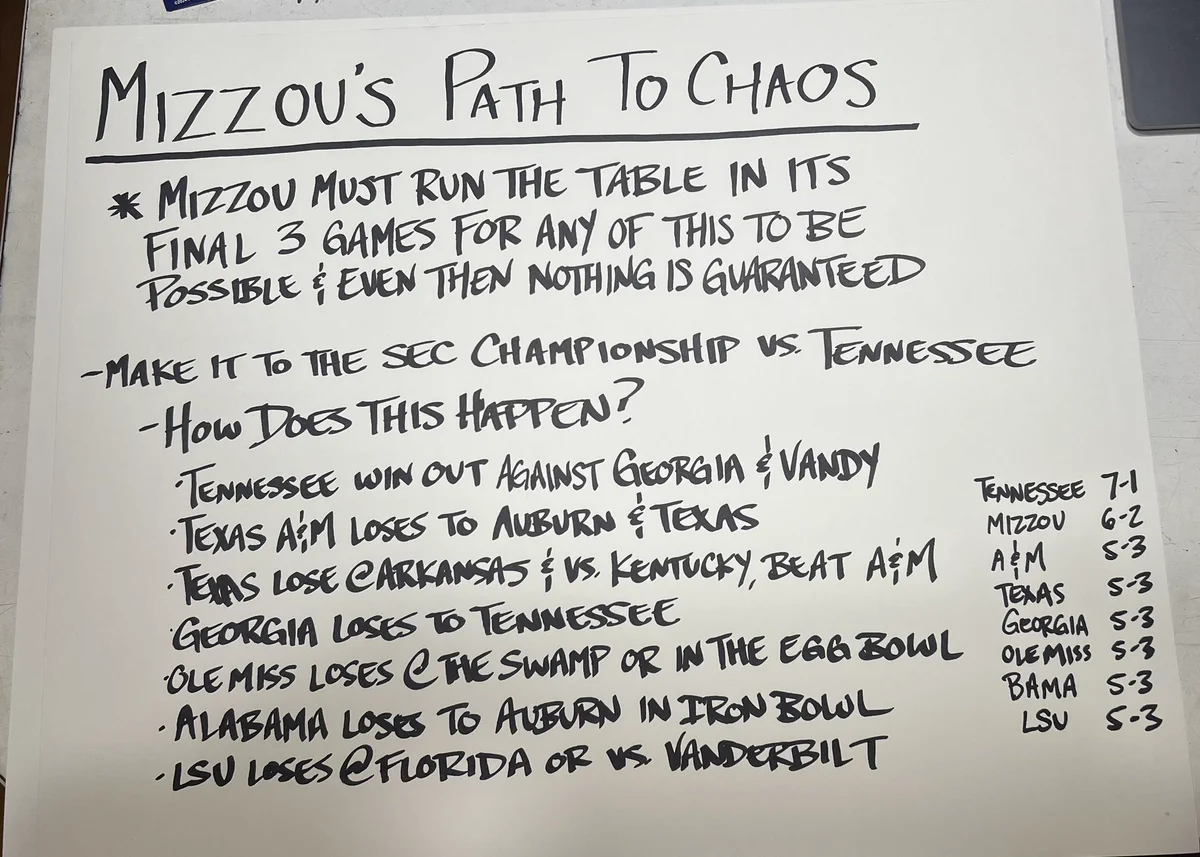 MIZZOU'S PATH TO CHAOS
* MIZZOU MUST RUN THE TABLE IN ITS
FINAL 3 GAMES FOR ANY OF THIS TO BE
POSSIBLE & EVEN THEN NOTHING IS GUARANTEED
-MAKE IT TO THE SEC CHAMPIONSHIP VS. TENNESSEE
-HOW DOES THIS HAPPEN?
·TENNESSEE WIN OUT AGAINST GEORGIA & VANDY
·TEXAS A&M LOSES TO AUBURN & TEXAS
·TEXAS LOSE @ARKANSAS & VS. KENTUCKY, BEAT A&M
·GEORGIA LOSES TO TENNESSEE
·OLE MISS LOSES @ THE SWAMP OR IN THE EGG BOWL
·ALABAMA LOSES TO AUBURN IN IRON BOWL
·LSU LOSES @FLORIDA OR VS. VANDERBILT
TENNESSEE 7-1
MIZZOU 6-2
A&M 5-3
TEXAS 5-3
GEORGIA 5-3
OLE MISS 5-3
BAMA 5-3
LSU 5-3